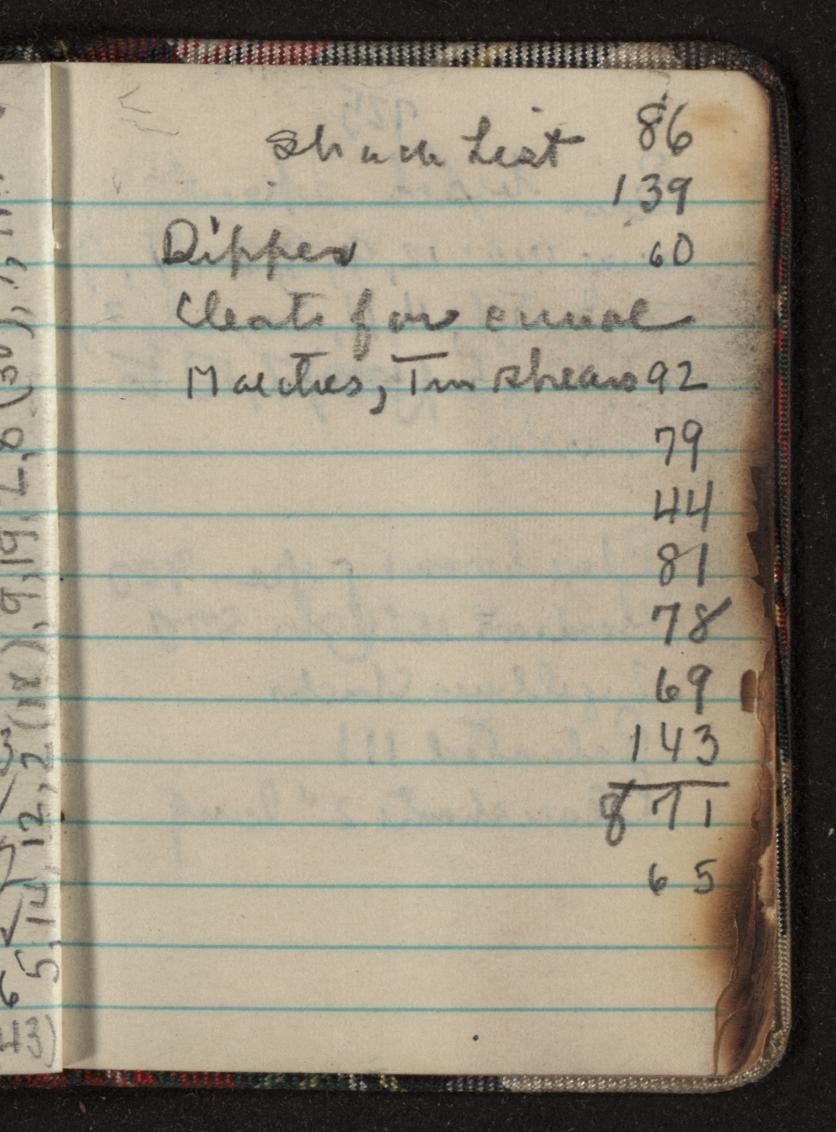 Shack List 86
139
Dipper 60
Cleats for canoe
Matches, Tin shears 92
79
44
81
78
69
143
871
65
5, 14, 12, 2
9, 19,